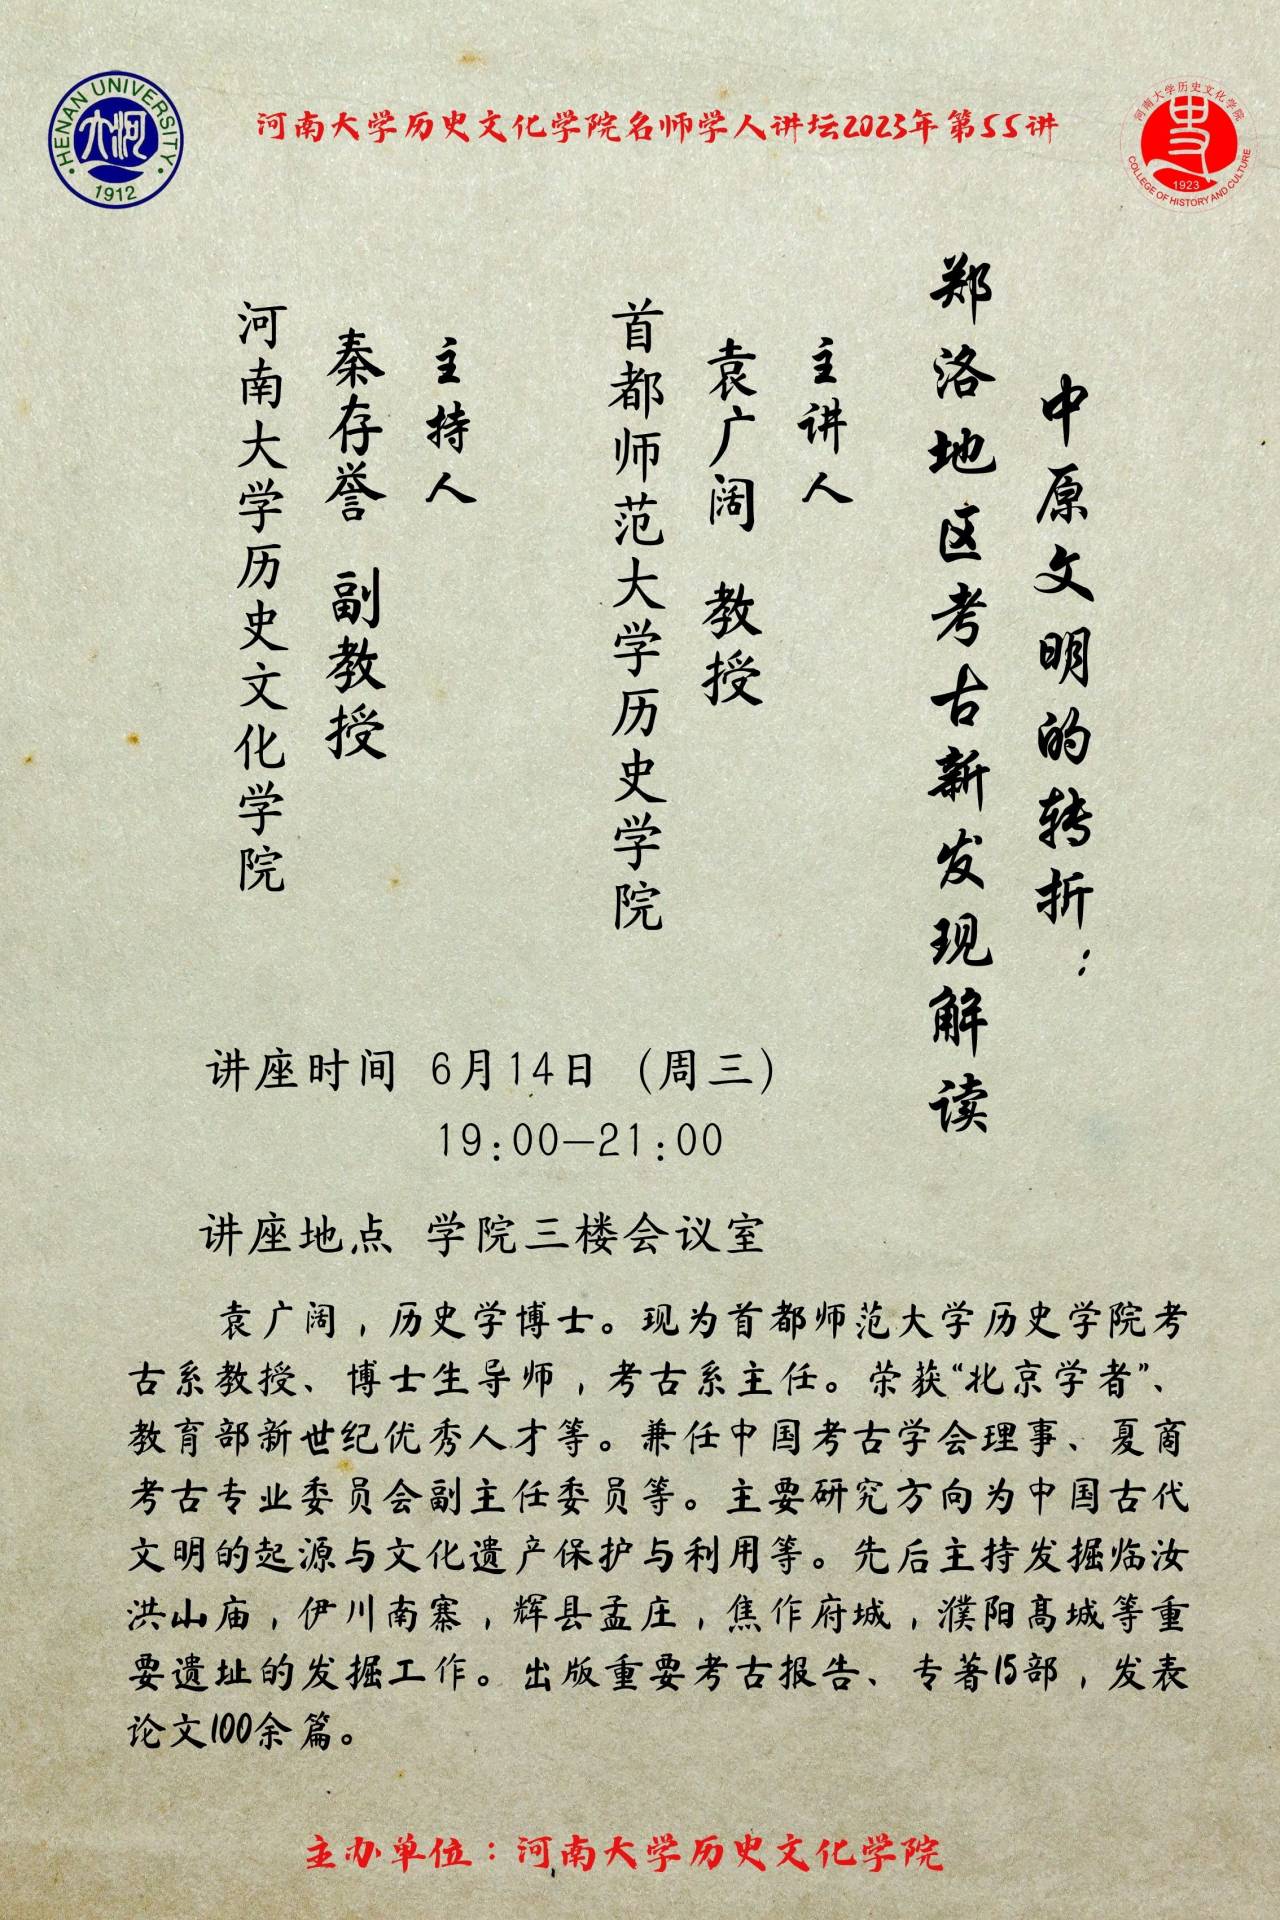 HENAN UNIVERSITY
大河
1912
河南大学历史文化学院名师学人讲坛2023年第55讲
河南大学历史文化学院
史
1923
COLLEGE OF HISTORY AND CULTURE
中原文明的转折：
郑洛地区考古新发现解读
主讲人
袁广阔 教授
首都师范大学历史学院
主持人
秦存誉 副教授
河南大学历史文化学院
讲座时间 6月14日（周三）
19:00—21:00
讲座地点 学院三楼会议室
袁广阔，历史学博士。现为首都师范大学历史学院考
古系教授、博士生导师，考古系主任。荣获“北京学者”、
教育部新世纪优秀人才等。兼任中国考古学会理事、夏商
考古专业委员会副主任委员等。主要研究方向为中国古代
文明的起源与文化遗产保护与利用等。先后主持发掘临汝
洪山庙，伊川南寨，辉县孟庄，焦作府城，濮阳高城等重
要遗址的发掘工作。出版重要考古报告、专著15部，发表
论文100余篇。
主办单位：河南大学历史文化学院